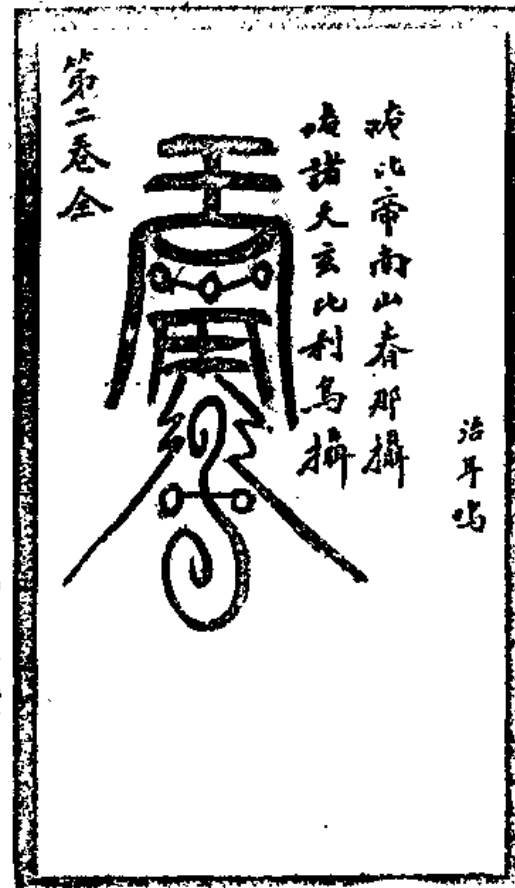 治耳鳴
唵北帝南山春那攝
唵諸天玄比利烏攝
第二卷全